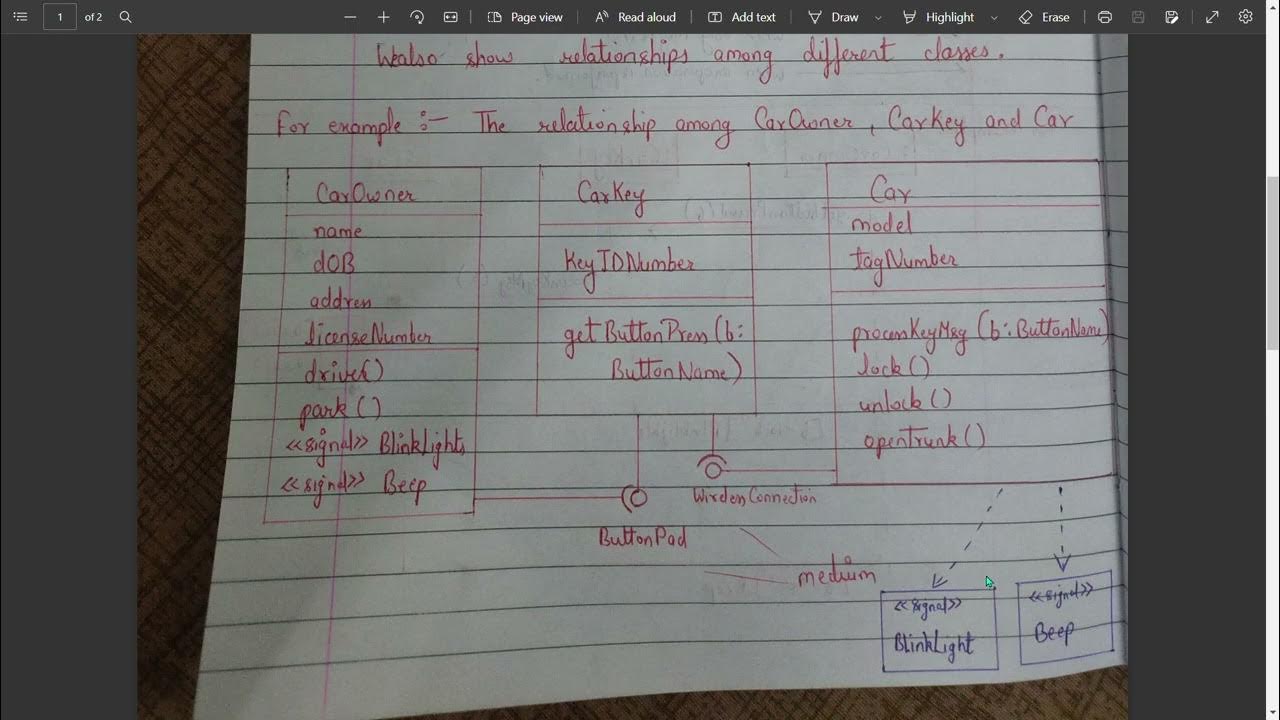 1 of 2
Page view
Read aloud
Add text
Draw
Highlight
Erase
We also show relationships among different classes.
For example :- The relationship among CarOwner, CarKey and Car
CarOwner
name
dOB
address
licenseNumber
drive()
park()
<<signal>> BlinkLights
<<signal>> Beep
CarKey
KeyIDNumber
getButtonPress(b:
ButtonName)
Car
model
tagNumber
processKeyMsg (b: ButtonName)
lock()
unlock()
openTrunk()
Wireless Connection
ButtonPad
medium
<<signal>>
BlinkLight
<<signal>>
Beep